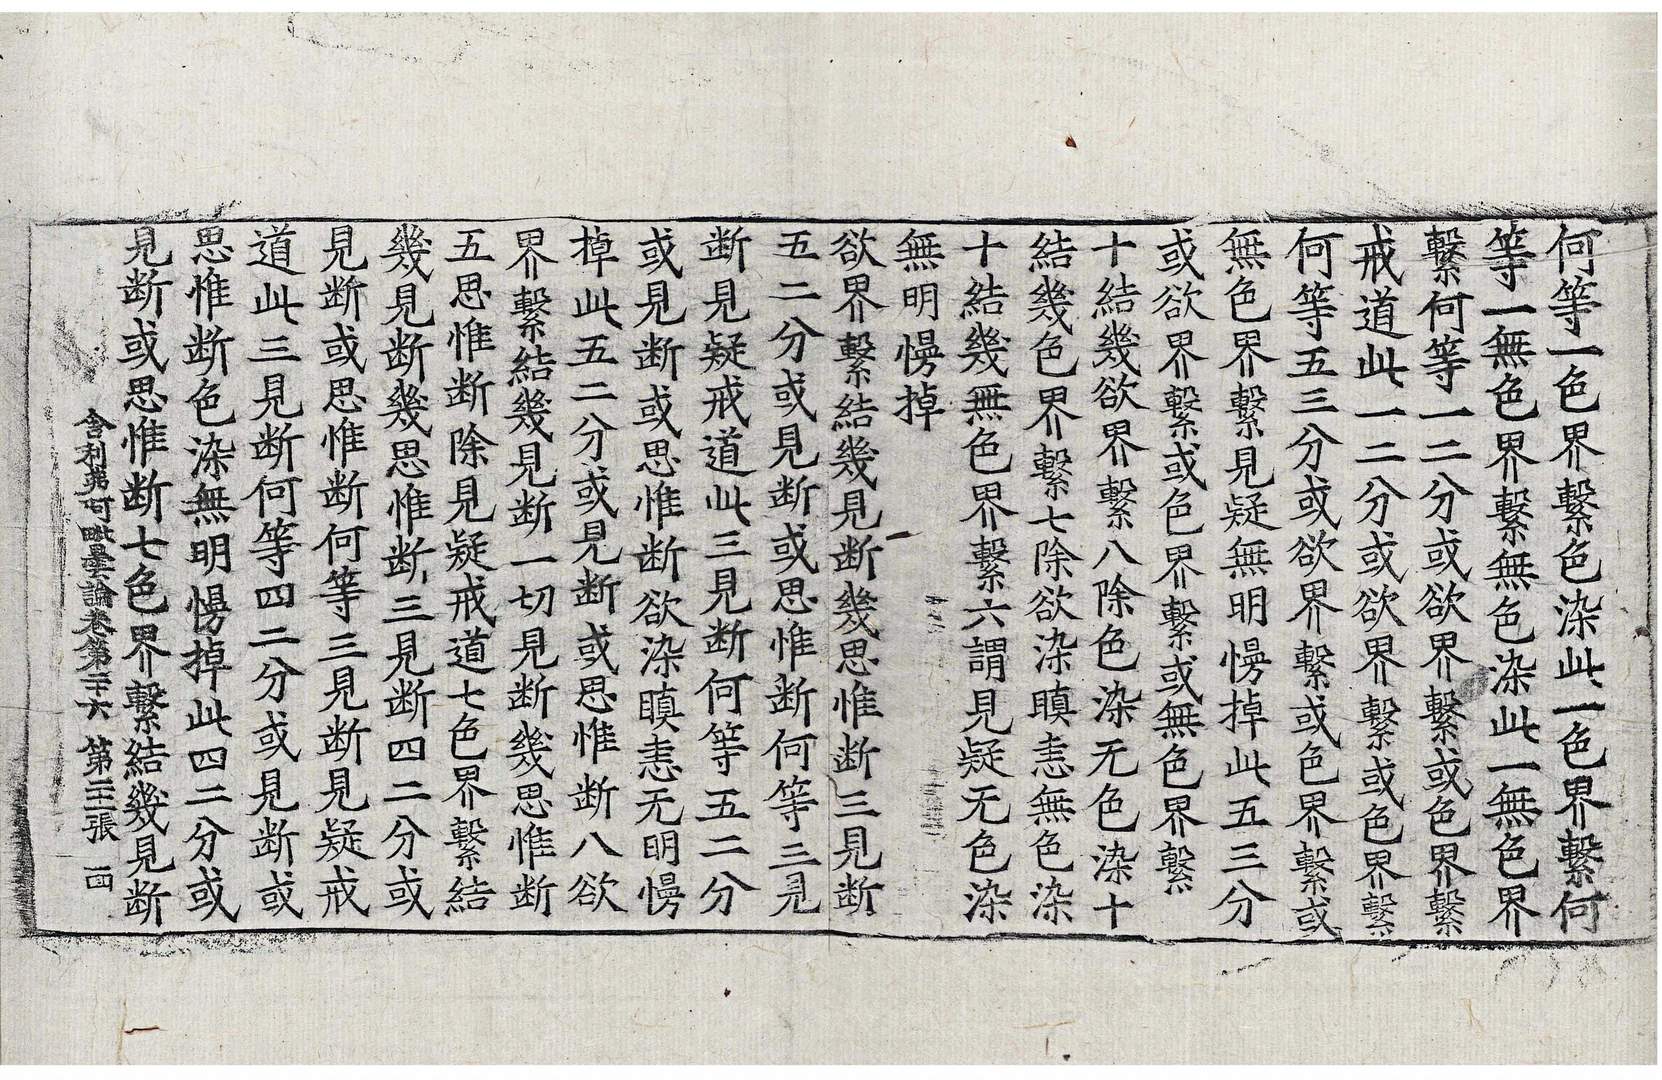 何等一色界繫色染此一色界繫何
等一無色界繫無色染此一無色界
繫何等一二分或欲界繫或色界繫
戒道此一二分或欲界繫或色界繫
何等五三分或欲界繫或色界繫或
無色界繫見疑無明慢掉此五三分
或欲界繫或色界繫或無色界繫
十結幾欲界繫八除色染无色染十
結幾色界繫七除欲染瞋恚無色染
十結幾無色界繫六謂見疑无色染
無明慢掉
欲界繫結幾見断幾思惟断三見断
五二分或見断或思惟断何等三見
断見疑戒道此三見断何等五二分
或見断或思惟断欲染瞋恚无明慢
掉此五二分或見断或思惟断八欲
界繫結幾見断一切見断幾思惟断
五思惟断除見疑戒道七色界繫結
幾見断幾思惟断三見断四二分或
見断或思惟断何等三見断見疑戒
道此三見断何等四二分或見断或
思惟断色染無明慢掉此四二分或
見断或思惟断七色界繫結幾見断
舍利弗阿毗曇論卷第二十六 第二十張 一四